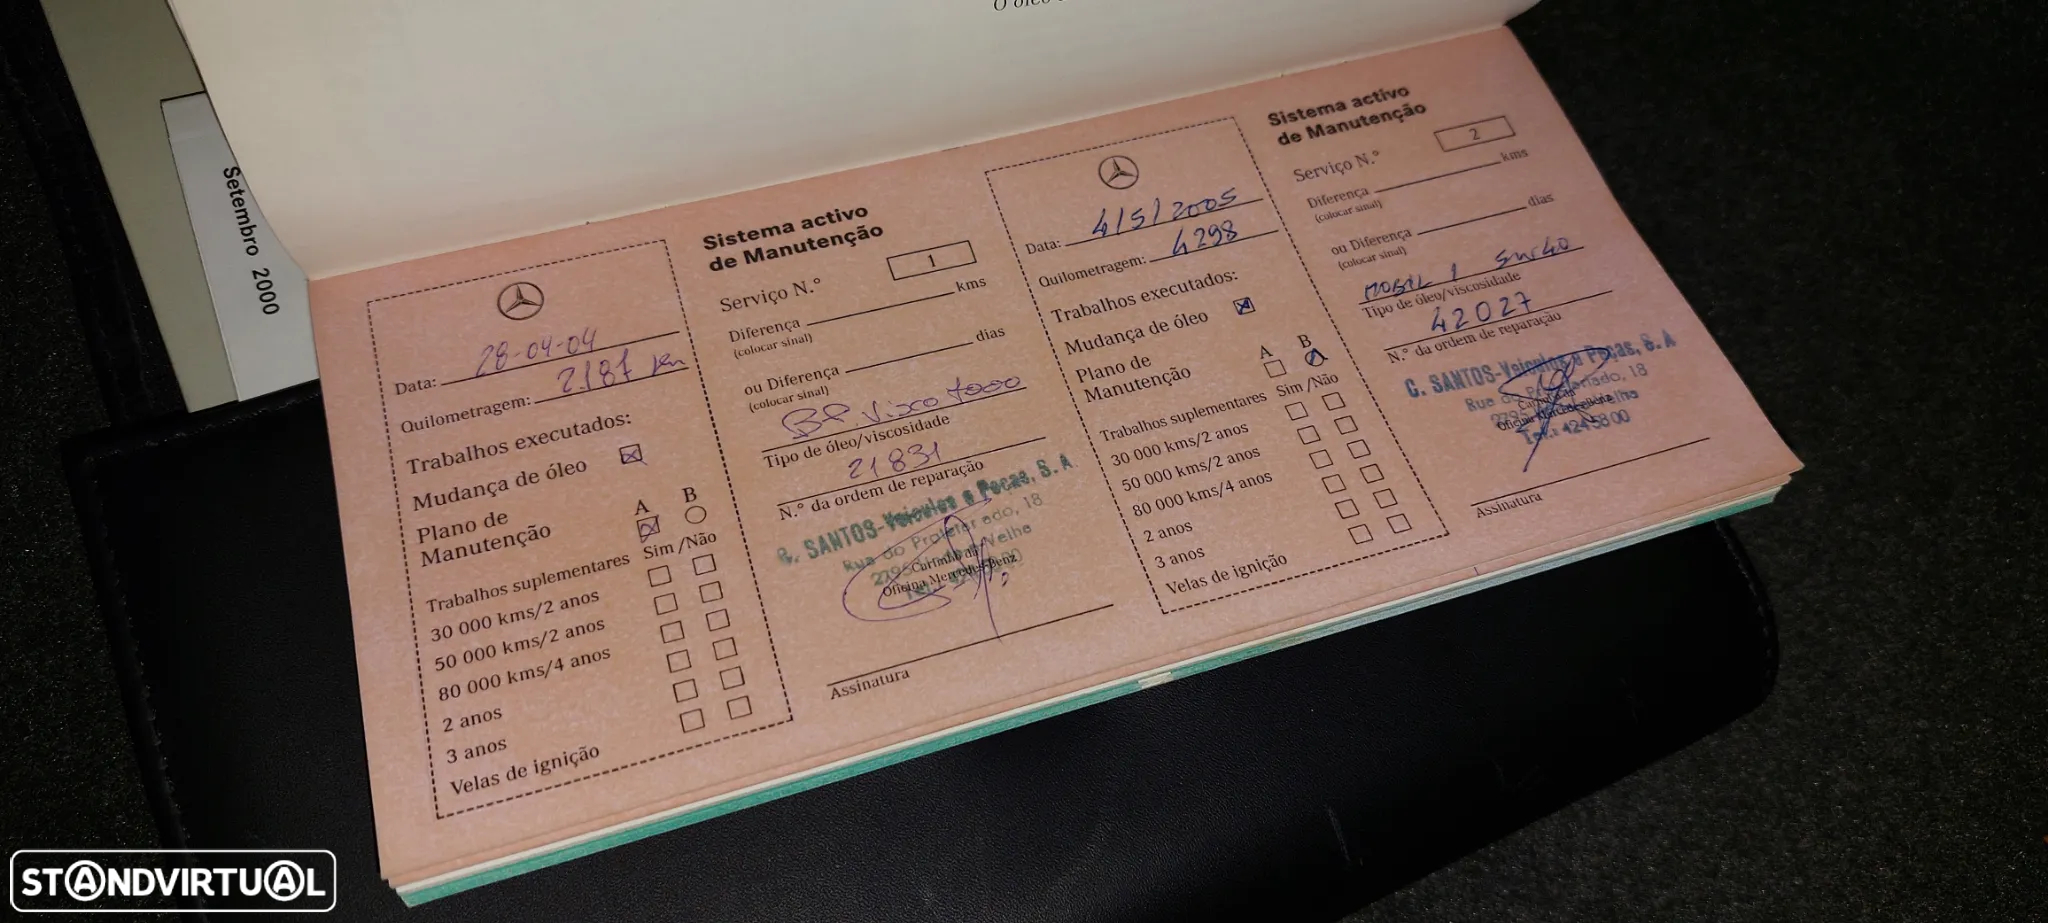 O óleo
Setembro 2000
Data: 28-04-04
Quilometragem: 2187 km
Trabalhos executados:
Mudança de óleo
Plano de
Manutenção
A B
Trabalhos suplementares Sim /Não
30 000 kms/2 anos
50 000 kms/2 anos
80 000 kms/4 anos
2 anos
3 anos
Velas de ignição
Sistema activo
de Manutenção
Serviço N.° 1
Diferença kms
(colocar sinal)
ou Diferença dias
(colocar sinal)
BP Visco 7000
Tipo de óleo/viscosidade
21831
N.° da ordem de reparação
C. SANTOS-Veiculos e Peças, S. A
Rua do Proletariado, 18
Carimbo da
Oficina Mercedes-Benz
Assinatura
Data: 4/5/2005
Quilometragem: 4298
Trabalhos executados:
Mudança de óleo
Plano de
Manutenção
A B
Trabalhos suplementares Sim /Não
30 000 kms/2 anos
50 000 kms/2 anos
80 000 kms/4 anos
2 anos
3 anos
Velas de ignição
Sistema activo
de Manutenção
Serviço N.° 2
Diferença kms
(colocar sinal)
ou Diferença dias
(colocar sinal)
MOBIL 1 5W40
Tipo de óleo/viscosidade
42027
N.° da ordem de reparação
C. SANTOS-Veiculos e Peças, S. A
Rua do Proletariado, 18
Carimbo da
Oficina Mercedes-Benz
Assinatura
STANDVIRTUAL